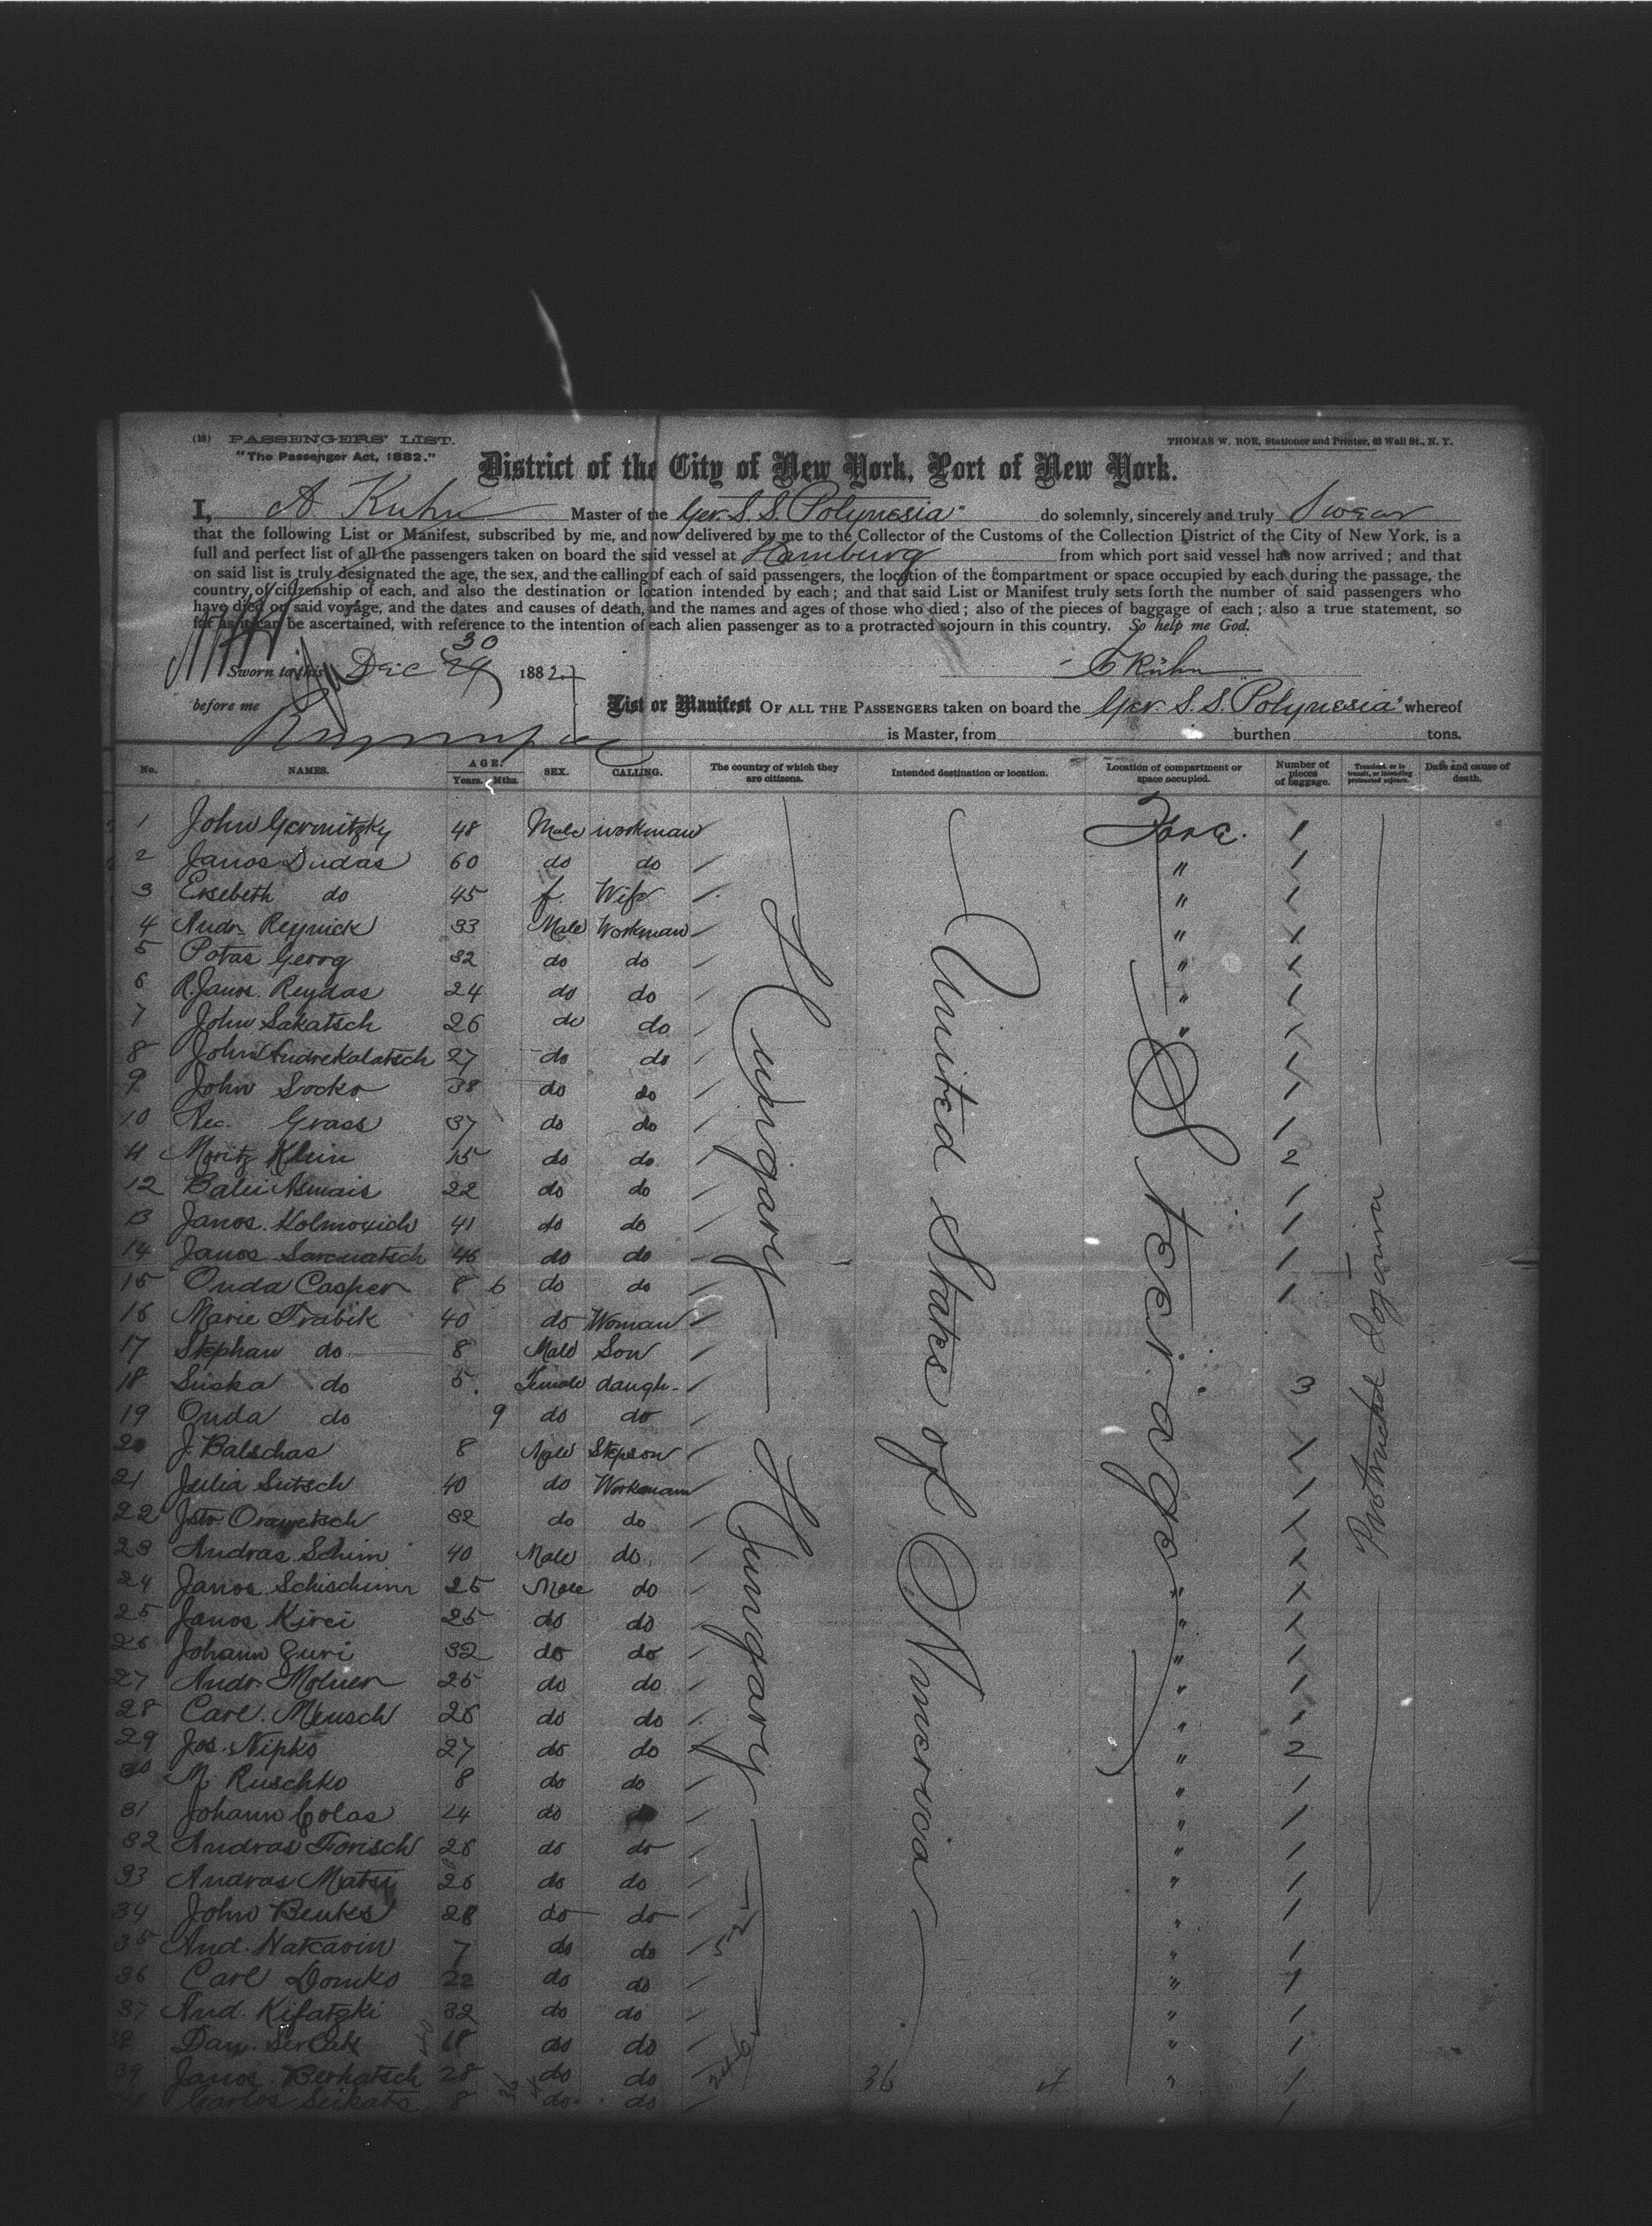 (18) PASSENGERS' LIST.
"The Passenger Act, 1882."
THOMAS W. ROE, Stationer and Printer, 62 Wall St., N. Y.
District of the City of New York, Port of New York.
I, A Kuhn Master of the Ger. S. S. "Polynesia" do solemnly, sincerely and truly Swear
that the following List or Manifest, subscribed by me, and now delivered by me to the Collector of the Customs of the Collection District of the City of New York, is a
full and perfect list of all the passengers taken on board the said vessel at Hamburg from which port said vessel has now arrived; and that
on said list is truly designated the age, the sex, and the calling of each of said passengers, the location of the compartment or space occupied by each during the passage, the
country of citizenship of each, and also the destination or location intended by each; and that said List or Manifest truly sets forth the number of said passengers who
have died on said voyage, and the dates and causes of death, and the names and ages of those who died; also of the pieces of baggage of each; also a true statement, so
far as it can be ascertained, with reference to the intention of each alien passenger as to a protracted sojourn in this country. So help me God.
Sworn to this Dec 29 30 1882
Kühn
before me
List or Manifest OF ALL THE PASSENGERS taken on board the Ger. S. S. "Polynesia" whereof
is Master, from burthen tons.
No. NAMES. AGE. Years. Mths. SEX. CALLING. The country of which they are citizens. Intended destination or location. Location of compartment or space occupied. Number of pieces of baggage. Transient, or in transit, or intending protracted sojourn. Date and cause of death.
Hungary — Hungary
United States of America
Steerage
Protracted Sojourn
1 John Germitzky 48 Male workman Fore. 1
2 Janos Dudas 60 do do " 1
3 Ersebeth do 45 f. Wife " 1
4 Andr. Reynick 33 Male Workman " 1
5 Potas Georg 32 do do " 1
6 R. Janos Reydas 24 do do " 1
7 John Sakatsch 26 do do " 1
8 John Andrekalatsch 27 do do 1
9 John Socko 38 do do 1
10 Grass 37 do do 1
11 Moritz Klein 15 do do 2
12 22 do do 1
13 Janos Kolmoxich 41 do do 1
14 Janos Sarcuatsch 46 do do 1
15 Onda Casper 8 6 do do 1
16 Marie Trabik 40 do Woman
17 Stephan do 8 Male Son
18 Suska do 5 Female daugh. 3
19 Onda do 9 do do
20 J. Balschas 8 Male Stepson 1
21 Julia Sutsch 40 do Workmann 1
22 Orawetsch 32 do do 1
23 Andras Schim 40 Male do 1
24 Janos Schischimr 25 Male do " 1
25 Janos Kirei 25 do do " 1
26 Johann Euri 32 do do " 1
27 Andr. Molner 25 do do " 1
28 Carl. Meusch 26 do do " 1
29 Jos. Nipko 27 do do " 2
30 M. Ruschko 8 do do " 1
31 Johann Colas 24 do do " 1
32 Andras Forisch 26 do do " 1
33 Andras Matsi 26 do do " 1
34 John Benkes 28 do do " 1
35 And. Hatcavin 7 do do " 1
36 Carl Domko 22 do do " 1
37 And. Kifatzki 32 do do " 1
38 Dan. 18 do do " 1
39 Janos Berhatsch 28 do do " 1
Carlos Seikats 8 do do 1
36 4